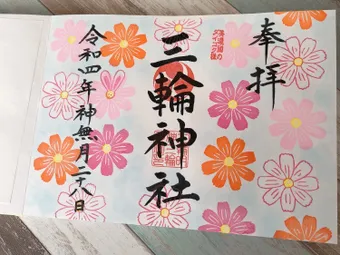 奉拝
三輪神社
令和四年神無月二十八日